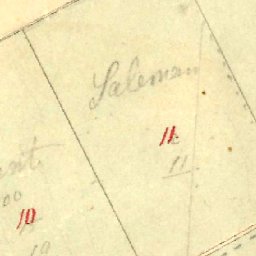 Saleman
11
11
00
10
10